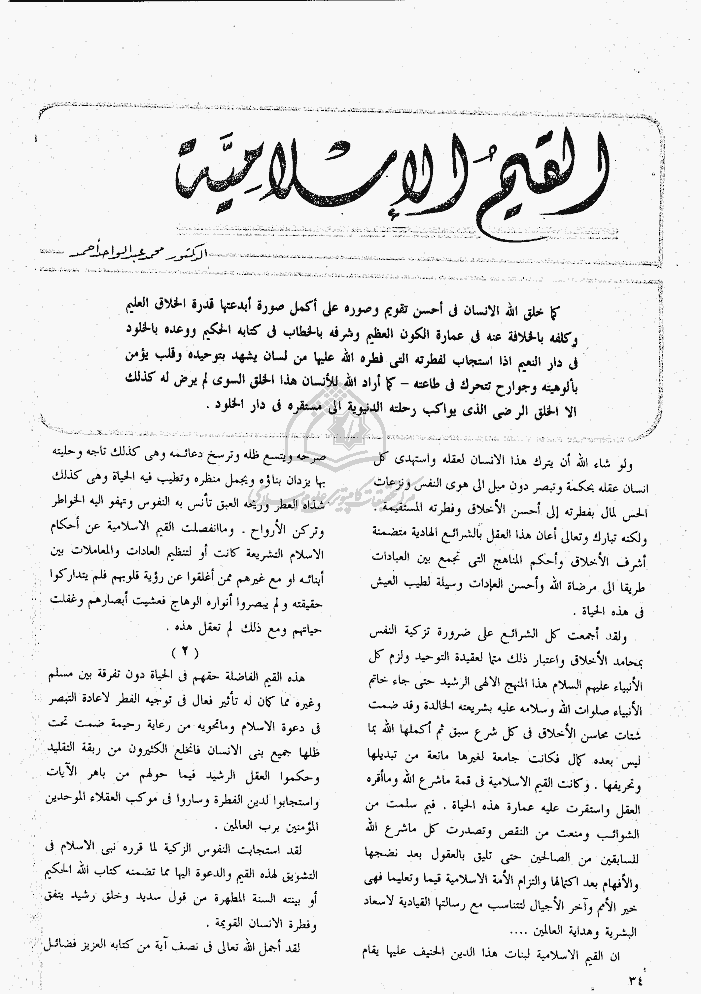 القيم الإسلامية
الدكتور محمد عبد الواحد أحمد
كما خلق الله الانسان فى أحسن تقويم وصوره على أكمل صورة أبدعتها قدرة الخلاق العليم
وكلفه بالخلافة عنه فى عمارة الكون العظيم وشرفه بالخطاب فى كتابه الحكيم ووعده بالخلود
فى دار النعيم اذا استجاب لفطرته التى فطره الله عليها من لسان يشهد بتوحيده وقلب يؤمن
بألوهيته وجوارح تتحرك فى طاعته – كما أراد الله للأنسان هذا الخلق السوى لم يرض له كذلك
الا الخلق الرضى الذى يواكب رحلته الدنيوية الى مستقره فى دار الخلود .
ولو شاء الله أن يترك هذا الانسان لعقله واستهدى كل
انسان عقله بحكمة وتبصر دون ميل الى هوى النفس ونزعات
الحس لمال بفطرته إلى أحسن الأخلاق وفطرته المستقيمة .
ولكنه تبارك وتعالى أعان هذا العقل بالشرائع الهادية متضمنة
أشرف الأخلاق وأحكم المناهج التى تجمع بين العبادات
طريقا الى مرضاة الله وأحسن العادات وسيلة لطيب العيش
فى هذه الحياة .
ولقد أجمعت كل الشرائع على ضرورة تزكية النفس
بمحامد الأخلاق واعتبار ذلك متما لعقيدة التوحيد ولزم كل
الأنبياء عليهم السلام هذا المنهج الالهى الرشيد حتى جاء خاتم
الأنبياء صلوات الله وسلامه عليه بشريعته الخالدة وقد ضمت
شتات محاسن الأخلاق فى كل شرع سبق ثم أكملها الله بما
ليس بعده كمال فكانت جامعة لغيرها مانعة من تبديلها
وتحريفها . وكانت القيم الاسلامية فى قمة ماشرع الله وماأقره
العقل واستقرت عليه عمارة هذه الحياة . فيم سلمت من
الشوائب ومنعت من النقص وتصدرت كل ماشرع الله
للسابقين من الصالحين حتى تليق بالعقول بعد نضجها
والأفهام بعد اكتمالها والتزام الأمة الاسلامية قيما وتعليما فهى
خير الأمم وآخر الأجيال لتتناسب مع رسالتها القيادية لاسعاد
البشرية وهداية العالمين ....
ان القيم الاسلامية لبنات هذا الدين الحنيف عليها يقام
صرحه ويتسع ظله وترسخ دعائمه وهى كذلك تاجه وحليته
بها يزدان بناؤه ويجمل منظره وتطيب فيه الحياة وهى كذلك
شذاه العطر وريحه العبق تأنس به النفوس وتهفو اليه الخواطر
وتركن الأرواح . وماانفصلت القيم الاسلامية عن أحكام
الاسلام التشريعة كانت أو لتنظيم العادات والمعاملات بين
أبنائه او مع غيرهم ممن أغلقوا عن رؤية قلوبهم فلم يتداركوا
حقيقته ولم يبصروا أنواره الوهاج فعشيت أبصارهم وغفلت
حياتهم ومع ذلك لم تعقل هذه .
( ٢ )
هذه القيم الفاضلة حقهم فى الحياة دون تفرقة بين مسلم
وغيره مما كان له تأثير فعال فى توجيه الفطر لاعادة التبصر
فى دعوة الاسلام وماتحويه من رعاية رحيمة ضمت تحت
ظلها جميع بنى الانسان فانخلع الكثيرون من ربقة التقليد
وحكموا العقل الرشيد فيما حولهم من باهر الآيات
واستجابوا لدين الفطرة وساروا فى موكب العقلاء الموحدين
المؤمنين برب العالمين .
لقد استجابت النفوس الزكية لما قرره نبى الاسلام فى
التشويق لهذه القيم والدعوة اليها مما تضمنه كتاب الله الحكيم
أو بينته السنة المطهرة من قول سديد وخلق رشيد يتفق
وفطرة الانسان القويمة .
لقد أجمل الله تعالى فى نصف آية من كتابه العزيز فضائل
٣٤